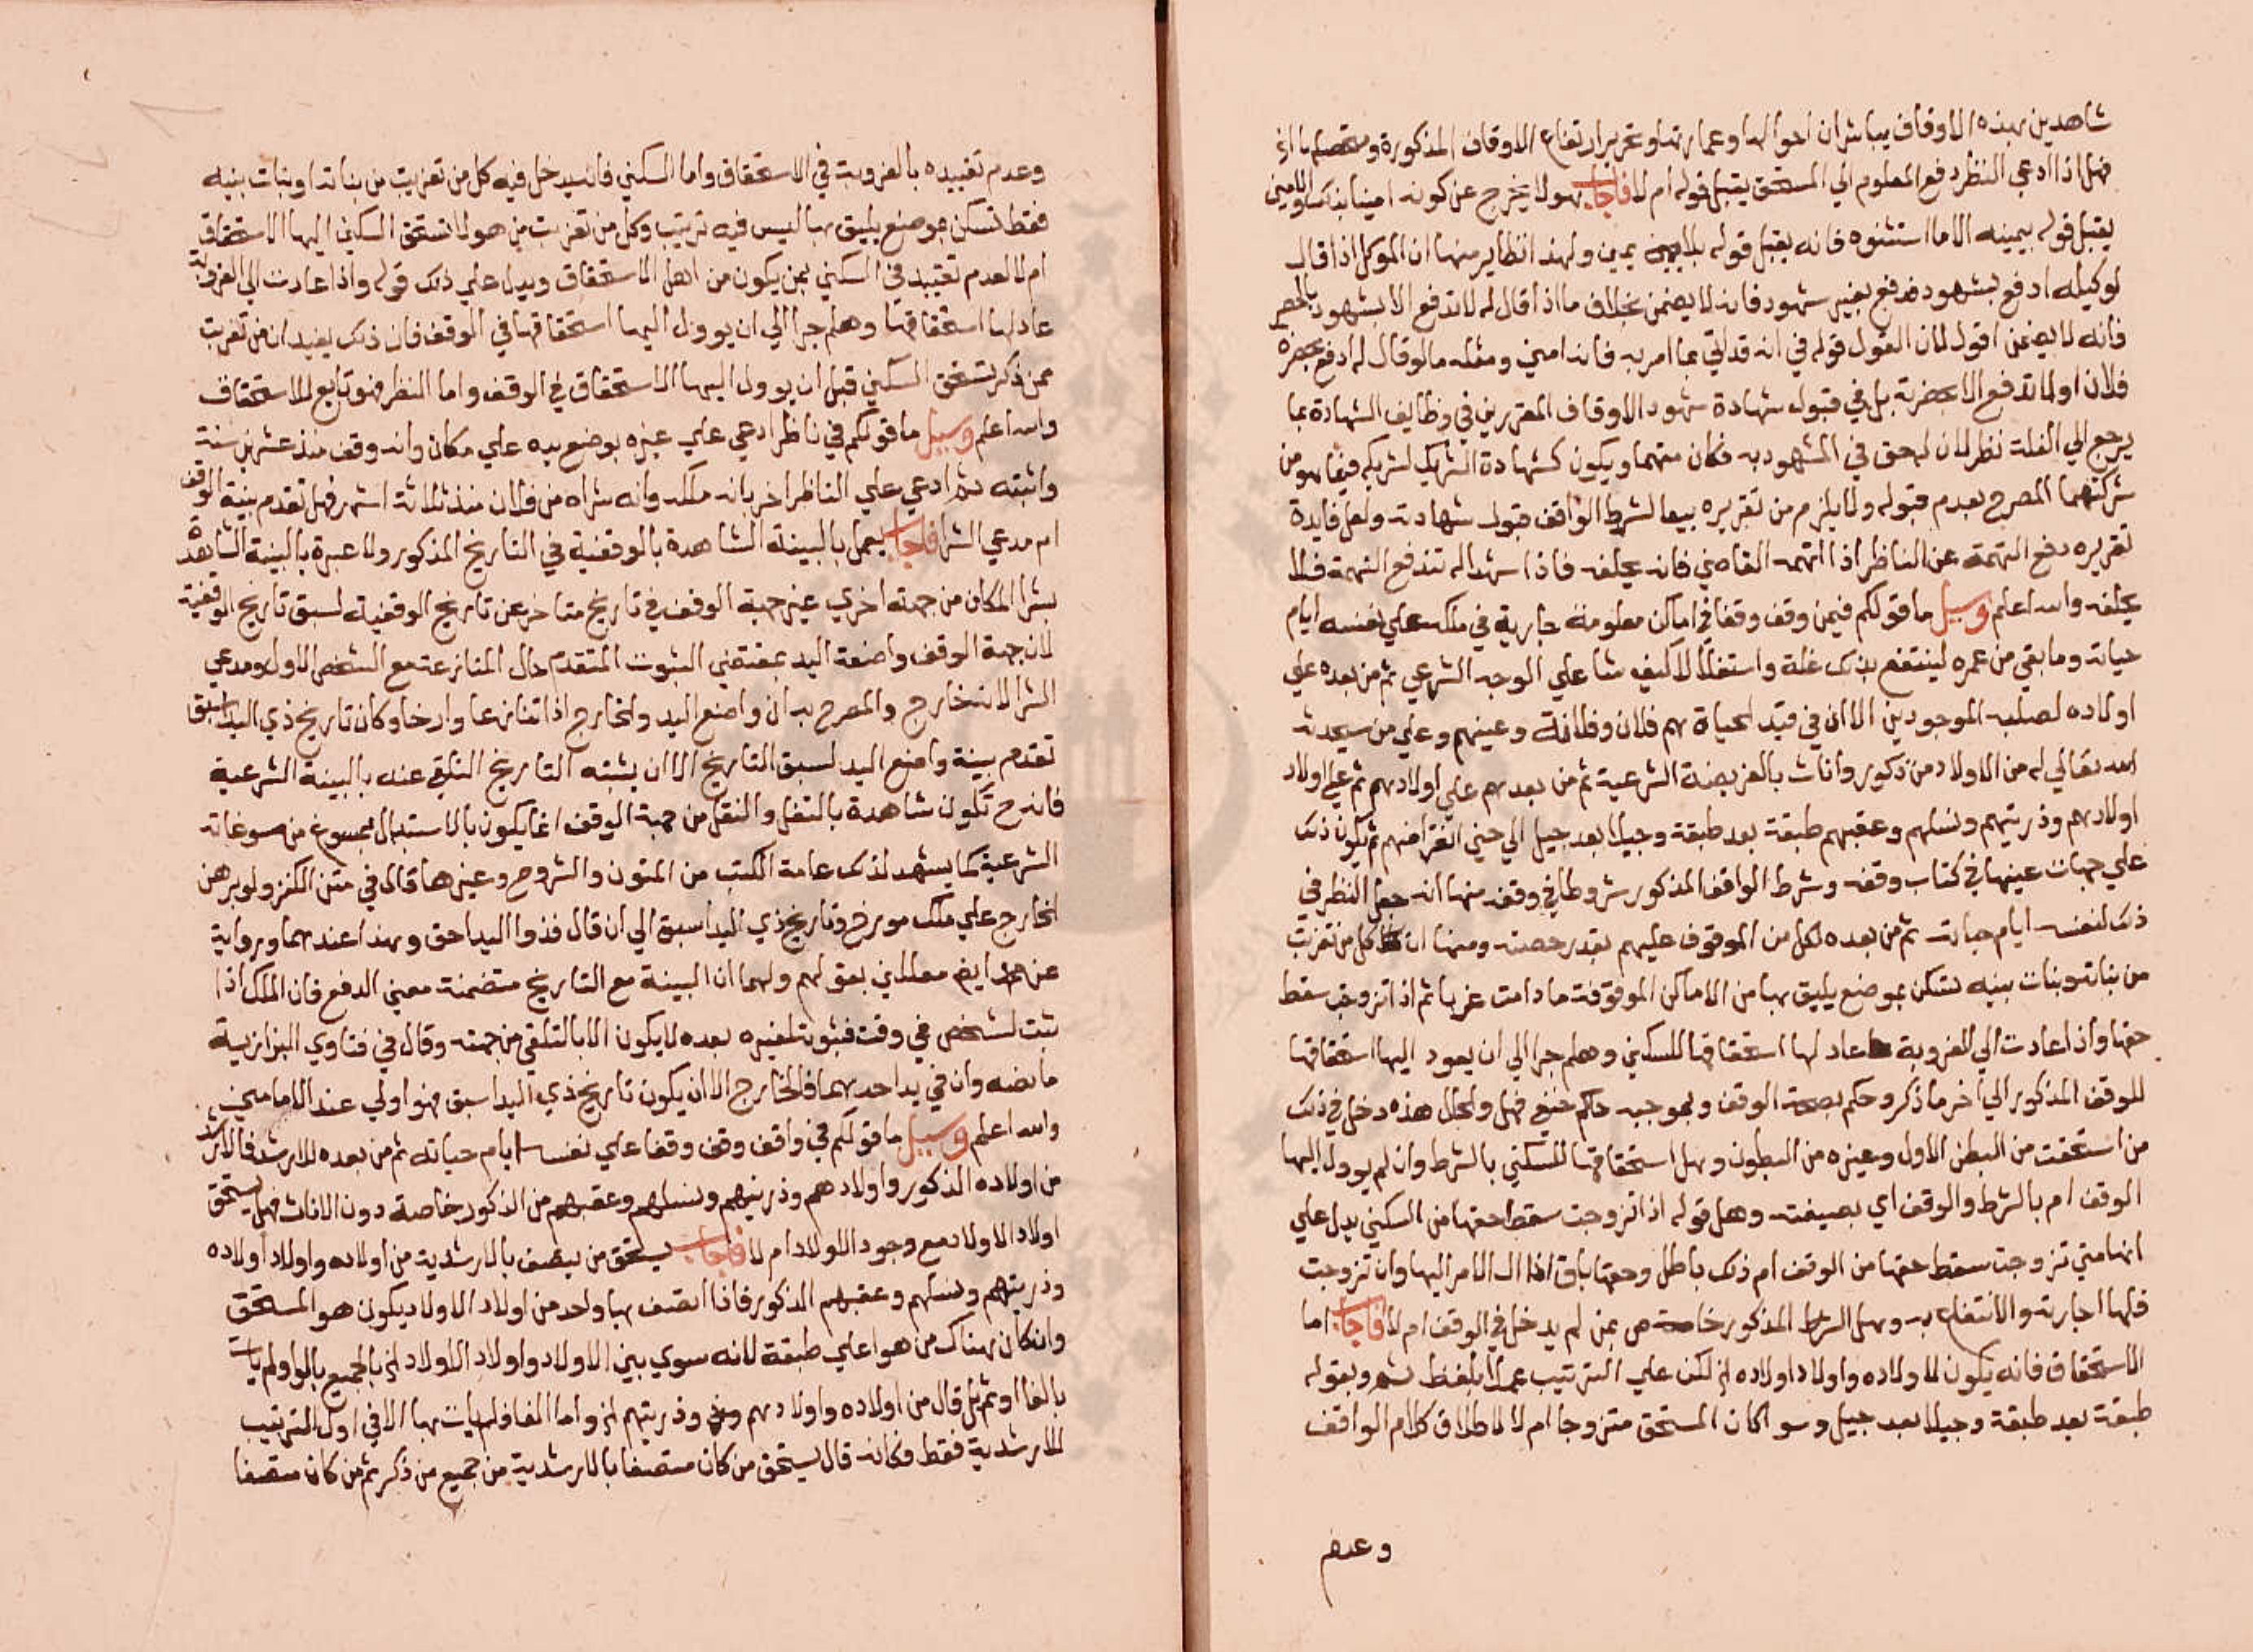 شاهدين بهذه الاوقاف يباشران احوالها وعمارتها وتحرير ارتفاع الاوقاف المذكورة
فهل اذا ادعي النظر دفع المعلوم الي المستحق يقبل قوله ام لا فاجاب هو لا يخرج عن كونه امينا بذلك والامين
يقبل قوله بيمينه الا ما استثنوه فانه يقبل قوله بلا يمين ولهذا نظاير منها ان الموكل اذا قال
لوكيله ادفع بشهود فدفع بغير شهود فانه لا يضمن بخلاف ما اذا قال له لا تدفع الا بشهود
فانه لا يضمن اقول لان القول قوله في انه قد اتي بما امر به فانه امين ومثله ما لو قال له ادفع بحضرة
فلان او لا تدفع الا بحضرته بل في قبول شهادة شهود الاوقاف المقررين في وظايف الشهادة بما
يرجع الي الغلة نظر لان له حق في المشهود به فكان متهما ويكون كشهادة الشريك لشريكه فيما هو من
شركتهما المصرح بعدم قبوله ولا يلزم من تقريره تبعا لشرط الواقف قبول شهادته ولعل فايدة
تقريره دفع التهمة عن الناظر اذا اتهمه القاضي فانه يحلفه فاذا شهدا له تندفع التهمة فلا
يحلفه والله اعلم وسيل ما قولكم فيمن وقف وقفا في اماكن معلومة جارية في ملكه علي نفسه ايام
حياته وما بقي من عمره لينتفع بذلك غلة واستغلالا كيف شا علي الوجه الشرعي ثم من بعده علي
اولاده لصلبه الموجودين الا ان في قيد الحياة هم فلان وفلانة وعينهم وعلي من سيحدثه
الله تعالي له من الاولاد من ذكور واناث بالفريضة الشرعية ثم من بعدهم علي اولادهم ثم علي اولاد
اولادهم وذريتهم ونسلهم وعقبهم طبقة بعد طبقة وجيلا بعد جيل الي حين انقراضهم ثم يكون ذلك
علي جهات عينها في كتاب وقفه وشرط الواقف المذكور شروطا في وقفه منها انه جعل النظر في
ذلك لنفسه ايام حياته ثم من بعده لكل من الموقوف عليهم بقدر حصته ومنها ان كل من تعزبت
من بناته وبنات بنيه تسكن بموضع يليق بها من الاماكن الموقوفة ما دامت عزبا ثم اذا تزوجت سقط
حقها واذا عادت الي العزوبة عاد لها استحقاقها للسكني وهلم جرا الي ان يعود اليها استحقاقها
للوقف المذكور الي اخر ما ذكر وحكم بصحة الوقف وبموجبه حاكم حنفي فهل والحال هذه دخل في ذلك
من استحقت من البطن الاول وغيره من البطون وهل استحقاقها للسكني بالشرط وان لم يوول اليها
الوقف ام بالشرط والوقف اي بصيغته وهل قوله اذا تزوجت سقط حقها من السكني يدل علي
انها متي تزوجت سقط حقها من الوقف ام ذلك باطل وحقها باق اذا ال الامر اليها وان تزوجت
فلها اجارته والانتفاع به وهل الشرط المذكور خاصة هي بمن لم يدخل في الوقف ام لا فاجاب اما
الاستحقاق فانه يكون لاولاده واولاد اولاده الخ لكن علي الترتيب عملا بلفظ ثم وبقوله
طبقة بعد طبقة وجيلا بعد جيل وسوا كان المستحق متزوجا ام لا لاطلاق كلام الواقف
وعدم
وعدم تقييده بالعزوبت في الاستحقاق واما السكني فانه يدخل فيه كل من تعزبت من بناته او بنات بنيه
فقط تسكن بموضع يليق بها ليس فيه ترتيب وكل من تعزبت من هولا تستحق السكني اليها الاستحقاق
ام لا لعدم تقييد في السكني بمن يكون من اهل الاستحقاق ويدل علي ذلك قوله واذا عادت الي العزوبة
عاد لها استحقاقها وهلم جرا الي ان يوول اليها استحقاقها في الوقف فان ذلك يفيد ان من تعزبت
ممن ذكر تستحق السكني قبل ان يوول اليها الاستحقاق في الوقف واما النظر فهو تابع للاستحقاق
والله اعلم وسيل ما قولكم في ناظر ادعي علي غيره بوضع يده علي مكان وانه وقف منذ عشرين سنة
واثبته ثم ادعي علي الناظر اخر بانه ملكه وانه شراه من فلان منذ ثلاثة اشهر فهل تقدم بينة الوقف
ام مدعي الشرا فاجاب يعمل بالبينة الشاهدة بالوقفية في التاريخ المذكور ولا عبرة بالبينة الشاهدة
بشرا المكان من جهة اخري غير جهة الوقف في تاريخ متاخر عن تاريخ الوقفية لسبق تاريخ الوقفية
لان جهة الوقف واضعة اليد بمقتضي الثبوت المتقدم حال المنازعة مع الشخص الاول ومدعي
الشرا الان خارج والمصرح به ان واضع اليد والخارج اذا تنازعا وارخا وكان تاريخ ذي اليد اسبق
تقدم بينة واضع اليد لسبق التاريخ الا ان يثبته التاريخ التلقي عنه بالبينة الشرعية
فانه ح تكون شاهدة بالنقل والنقل من جهة الوقف انما يكون بالاستبدال بمسوغ من مسوغاته
الشرعية كما يشهد لذلك عامة الكتب من المتون والشروح وغيرها قال في متن الكنز ولو برهن
الخارج علي ملك مورخ وتاريخ ذي اليد اسبق الي ان قال فذوا اليد احق وهذا عندهما ورواية
عن ايض معللين بقولهم ولهما ان البينة مع التاريخ متضمنة معني الدفع فان الملك اذا
ثبت لشخص في وقت فثبوته لغيره بعده لا يكون الا بالتلقي من جهته وقال في فتاوي البزازية
ما نصه وان في يد احدهما فالخارج الا ان يكون تاريخ ذي اليد اسبق فهو اولي عند الامامين
والله اعلم وسيل ما قولكم في واقف وقف وقفا علي نفسه ايام حياته ثم من بعده للارشد فالارشد
من اولاده الذكور واولادهم وذريتهم ونسلهم وعقبهم من الذكور خاصة دون الاناث فهل يستحق
اولاد الاولاد مع وجود الاولاد ام لا فاجاب يستحق من يتصف بالارشدية من اولاده واولاد اولاده
وذريتهم ونسلهم وعقبهم الذكور فاذا اتصف بها واحد من اولاد الاولاد يكون هو المستحق
وان كان هناك من هو اعلي طبقة لانه سوي بين الاولاد واولاد الاولاد الخ بالجميع بالواو لم يات
بالفا او ثم بل قال من اولاده واولادهم وذريتهم الخ واما الفا فلم يات بها الا في اول الترتيب
للارشدية فقط فكانه قال يستحق من كان متصفا بالارشدية من جميع من ذكر ثم من كان متصفا